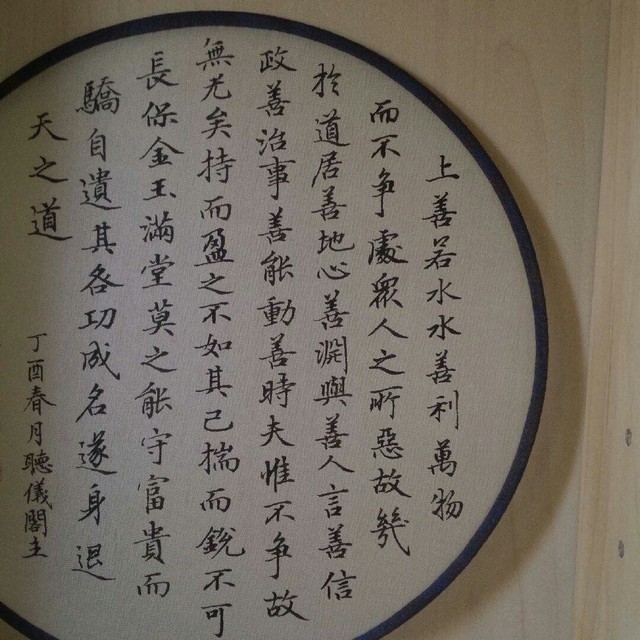 上善若水水善利萬物
而不争處衆人之所惡故幾
於道居善地心善淵與善人言善信
政善治事善能動善時夫惟不争故
無尤矣持而盈之不如其己揣而銳不可
長保金玉滿堂莫之能守富貴而
驕自遺其各功成名遂身退
天之道
丁酉春月聽儀閣主